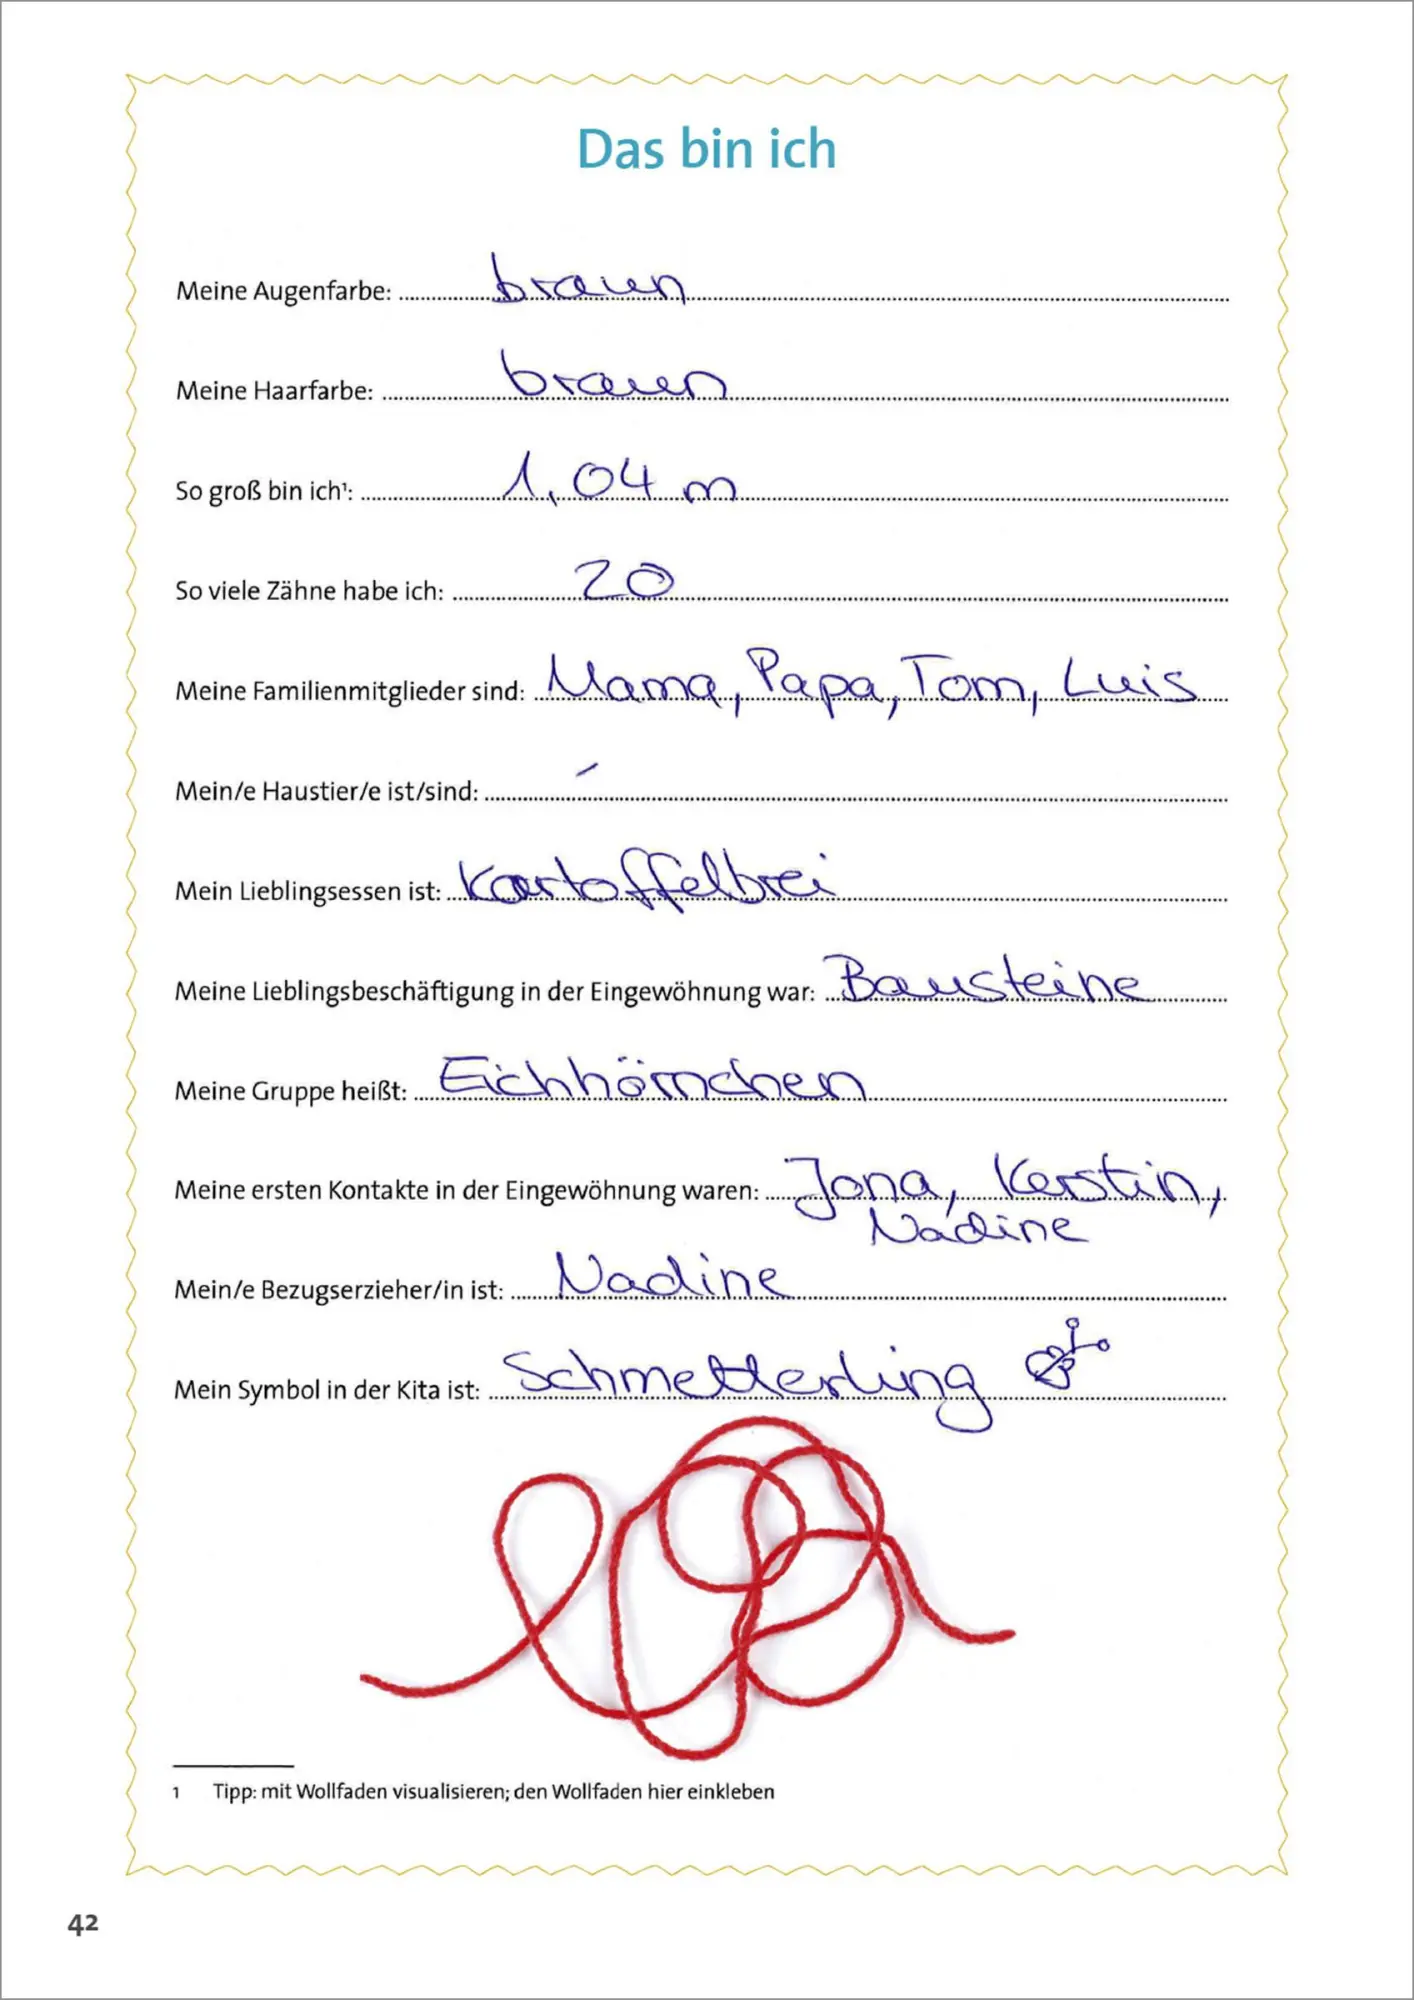 Das bin ich
Meine Augenfarbe: braun
Meine Haarfarbe: braun
So groß bin ich¹: 1,04 m
So viele Zähne habe ich: 20
Meine Familienmitglieder sind: Mama, Papa, Tom, Luis
Mein/e Haustier/e ist/sind: -
Mein Lieblingsessen ist: Kartoffelbrei
Meine Lieblingsbeschäftigung in der Eingewöhnung war: Bausteine
Meine Gruppe heißt: Eichhörnchen
Meine ersten Kontakte in der Eingewöhnung waren: Jona, Kerstin,
Nadine
Mein/e Bezugserzieher/in ist: Nadine
Mein Symbol in der Kita ist: Schmetterling
1 Tipp: mit Wollfaden visualisieren; den Wollfaden hier einkleben
42